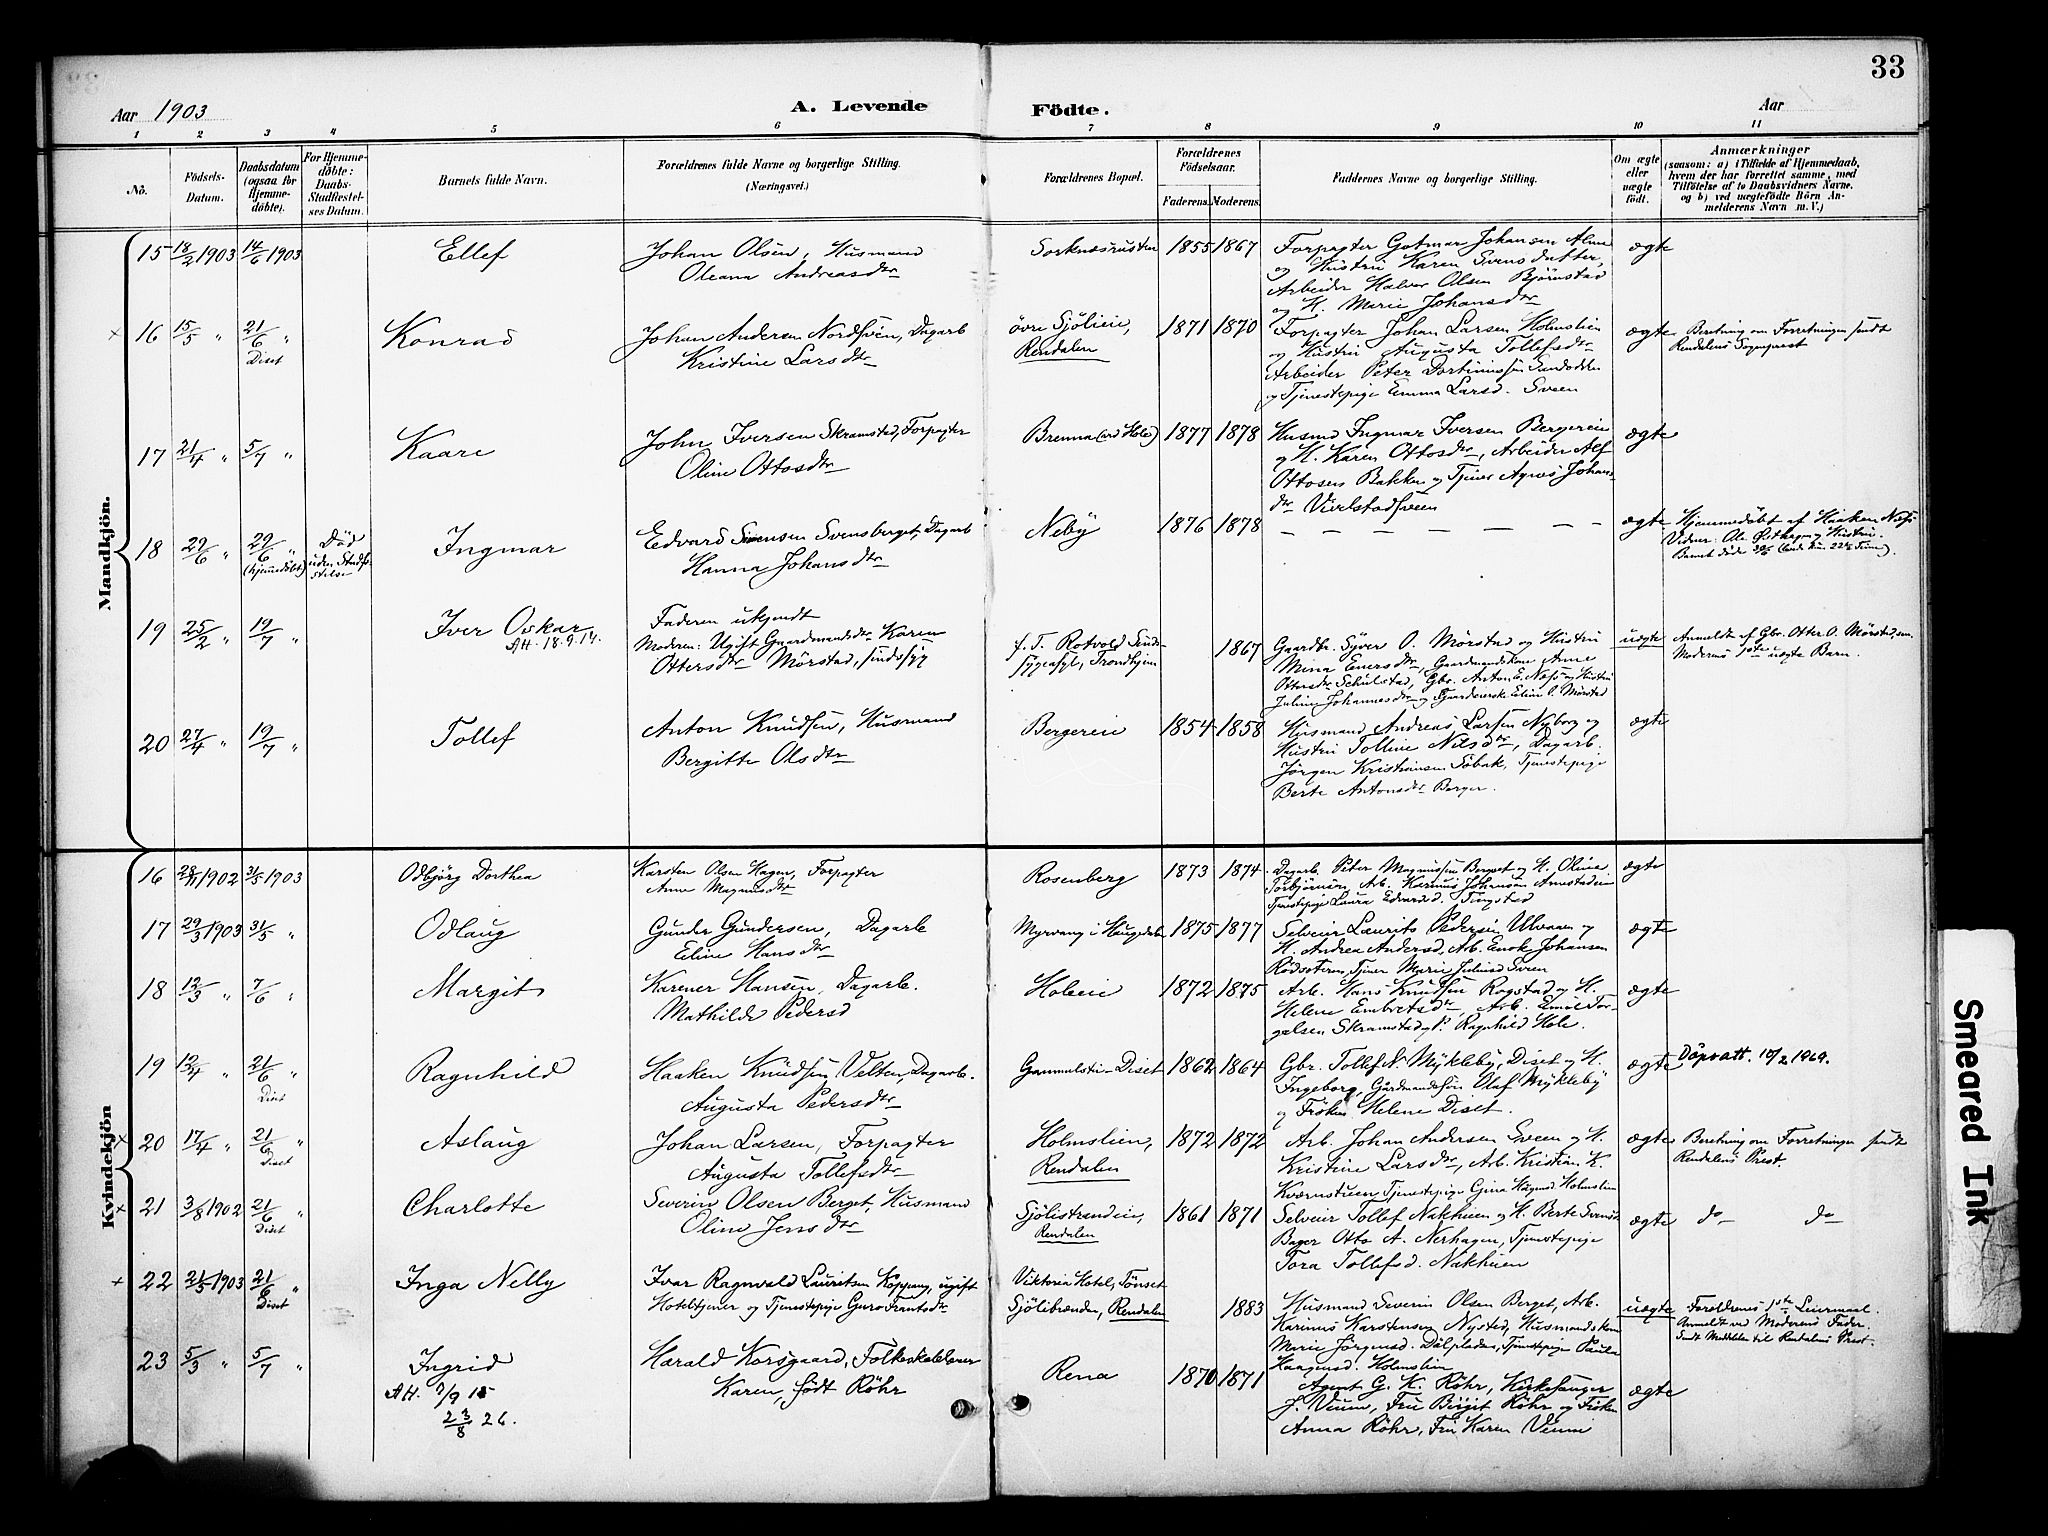 33
Aar 1903
A. Levende
Födte.
Aar
1 2 3 4 5 6 7 8 9 10 11
Nô.
Födsels-Datum.
Daabsdatum (ogsaa for Hjemme-döbte).
For Hjemme-döbte: Daabs-Stadfæstel-ses Datum.
Barnets fulde Navn.
Forældrenes fulde Navne og borgerlige Stilling.
(Næringsvei.)
Forældrenes Bopæl.
Forældrenes Födselsaar.
Faderens. Moderens.
Faddernes Navne og borgerlige Stilling.
Om ægte eller uægte født.
Anmærkninger
(saasom: a) i Tilfælde af Hjemmedaab,
hvem der har forrettet samme, med
Tilföielse af to Daabsvidners Navne.
og b) ved uægtefödte Börn An-
melderens Navn m. V.)
Mandkjön.
15 18/2 1903 14/6 1903 Ellef
Johan Olsen, Husmand
Oleana Andreasdtr
Sorknæsrusten 1855 1867
Forpagter Gotmar Johansen Alme
og Hustru Karen Svensdatter,
Arbeider Halvor Olsen Bjørnstad
og H. Marie Johansdtr
ægte
× 16 15/5 " 21/6 " Diset Konrad
Johan Andersen Nordsveen, Dagarb
Kristine Larsdtr
øvre Sjølieie, Rendalen 1871 1870
Forpagter Johan Larsen Holmslien
og Hustru Augusta Tollefsdtr
Arbeider Peter
og Tjenestepige Emma Larsd. Sveen
ægte
Beretning om Forretningen sendt
Rendalens Sogneprest
17 21/4 " 5/7 " Kaare
John Iversen Skramstad, Forpagter
Oline Ottosdtr
Brenna (ved Hole) 1877 1878
Husmd Ingmar Iversen Bergereie
og H. Karen Ottosdtr, Arbeider Alf
Ottosen Bakken og Tjener Agnes Johans-
dtr
ægte
18 29/6 " 29/6 " (hjemmedøbt) Død uden Stadfæstelse Ingmar
Edvard Svensen Svensberget, Dagarb
Hanna Johansdtr
Neby 1876 1878
— — — — —
ægte
Hjemmedøbt af Haaken Næss
Vidner: Ole Østberg og Hustru.
Barnet døde 30/6
19 25/2 " 19/7 " Iver Oskar
AH. 18.9.14.
Faderen ukjendt
Moderen: Ugift Gaardmandsdtr Karen
Ottersdtr Mørstad, sindssyg
f. T. Rotvold Sinds-
sygeasyl, Trondhjem 1867
Gaardbr. Syver O. Mørstad og Hustru
Mina Enersdtr, Gaardmandskone Anne
Ottersdtr Schulstad, Gbr. Anton E. Næss og Hustru
Juliane Johannesdtr og Eline O. Mørstad
uægte
Anmeldt af Gbr. Otter O. Mørstad, sen.
Moderens 1ste uægte Barn.
20 27/4 " 19/7 " Tollef
Anton Knudsen, Husmand
Bergitte Olsdtr
Bergereie 1854 1858
Husmand Andreas Larsen Nyborg og
Hustru Tolline Nilsdtr, Dagarb.
Jørgen Kristiansen Søbak, Tjenestepige
Berte Antonsdtr Berger.
ægte
Kvindekjön
16 28/11 1902 31/5 1903 Odbjørg Dorthea
Karsten Olsen Hagen, Forpagter
Anne Magnusdtr
Rosenberg 1873 1874
Dagarb. Peter Magnussen Berget og H. Oline
Torbjørnsen, Arb. Karinus Johansen
Tjenestepige Laura Edvardsd. Tingstad
ægte
17 29/3 1903 31/5 " Odlaug
Gunder Gundersen, Dagarb
Eline Hansdtr
Myrvang i Haugedalen 1875 1877
Selveier Laurits Pedersen Ulvaaen og
H. Andrea Andersd, Arb. Enok Johansen
Rødsæteren, Tjener Marie Juliusd Sveen
ægte
18 12/3 " 7/6 " Margit
Karener Hansen, Dagarb.
Mathilde Pedersd
Holeeie 1872 1875
Arb. Hans Knudsen Rogstad og H.
Helene Embretsdtr, Arb. Emil Tor-
gelsen Skramstad og P. Ragnhild Hole.
ægte
19 12/4 " 21/6 " Diset Ragnhild
Haaken Knudsen Velten, Dagarb.
Augusta Pedersdtr
Gammelstu-Diset 1862 1864
Gbr. Tollef N. Mykleby, Diset og H.
Ingeborg, Gårdmandssøn Olaf Mykleby
og Frøken Helene Diset.
ægte
Dåpsatt. 10/2 1969.
× 20 17/4 " 21/6 " Diset Aslaug
Johan Larsen, Forpagter
Augusta Tollefsdtr
Holmslien, Rendalen 1872 1872
Arb. Johan Andersen Sveen og H.
Kristine Larsdtr, Arb. Kristian K.
Kværnstuen Tjenestepige Gina Hågensd Holmslien
ægte
Beretning om Forretningen sendt
Rendalens Prest.
× 21 3/8 1902 21/6 " Diset Charlotte
Severin Olsen Berget, Husmand
Oline Jensdtr
Sjølistrandeie, Rendalen 1861 1871
Selveier Tollef Nakkuen og H. Berte Svensd
Bager Otto A. Nerhagen, Tjenestepige
Tora Tollefsd. Nakkuen
ægte
do— do—
× 22 21/5 1903 21/6 " Diset Inga Nelly
Ivar Ragnvald Lauritsen Koppang, ugift
Hoteltjener og Tjenestepige Guro Frantsdtr
Viktoria Hotel, Tønset
Sjølibrænden, Rendalen 1883
Husmand Severin Olsen Berget, Arb.
Karinus Karstensen Nysted, Husmandskone
Marie Jørgensd. Tjenestepige Paula
Haagensd. Holmslien
uægte
Forældrenes 1ste Leiermaal.
Anmeldt ved Moderens Fader.
Sendt Meddelelse til Rendalens Prest.
23 5/3 " 5/7 " Ingrid
AH. 7/9 15
23/8 26.
Harald Korsgaard, Folkeskolelærer
Karen, født Röhr
Rena 1870 1871
Agent G. K. Röhr, Kirkesanger
J. Veum, Fru Birgit Röhr og Frøken
Anna Röhr, Fru Karen Veum
ægte
Smeared Ink